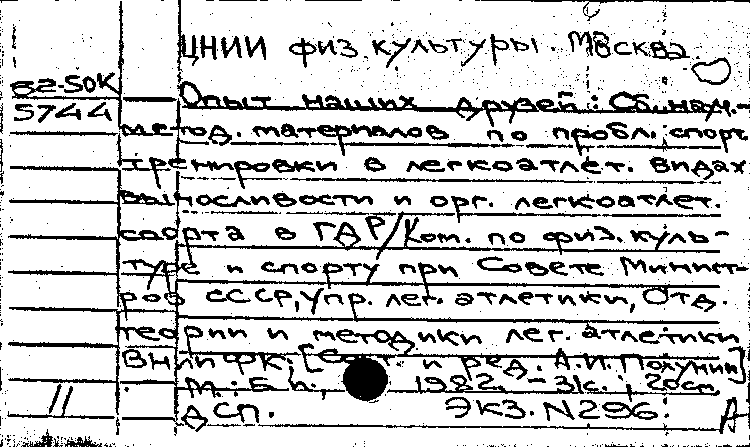 ЦНИИ физ. культуры. Москва.
82-50К
5744
Опыт наших друзей: Сб. науч.-
метод. материалов по пробл. спорт.
тренировки в легкоатлет. видах
выносливости и орг. легкоатлет.
спорта в ГДР/Ком. по физ. куль-
туре и спорту при Совете Минист-
ров СССР, Упр. лег. атлетики, Отд.
теории и методики лег. атлетики
ВНИИФК; [Сост. и ред. А.И. Полунин]
М.: Б.и., 1982. - 31с.; 20см
11
ДСП. Экз. N296. А